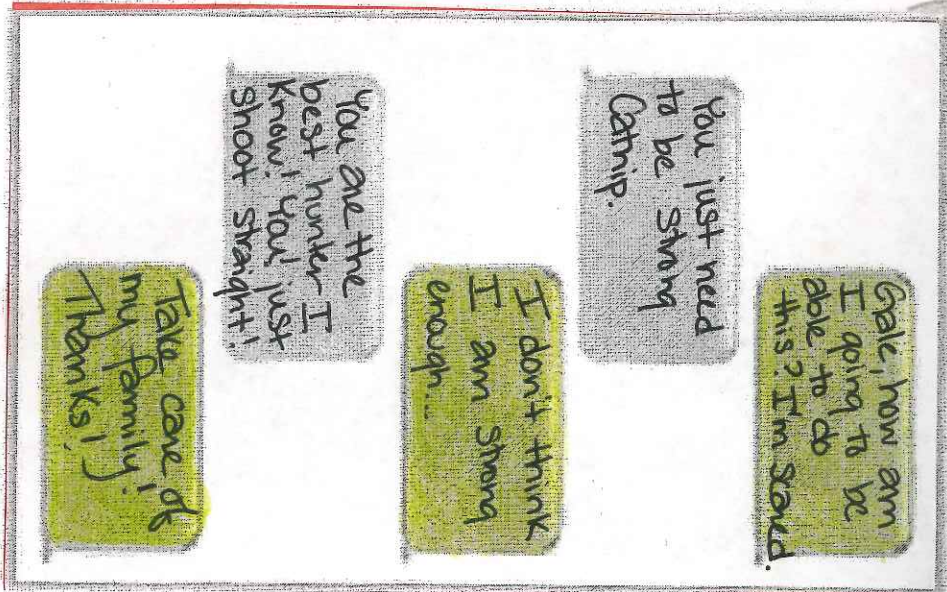 Gale, how am
I going to be
able to do
this? I'm scared.
You just need
to be strong
Catnip.
I don't think
I am strong
enough...
You are the
best hunter I
know! You just
shoot straight!
Take care of
my family!
Thanks!